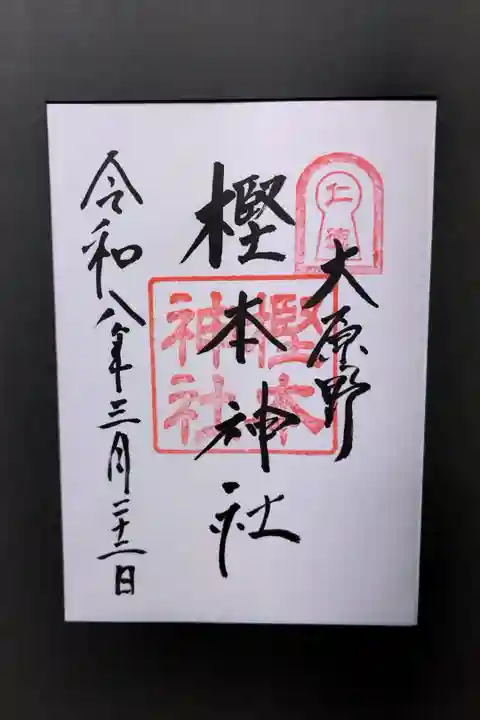 大原野
樫本神社
令和八年三月二十二日
樫本
神社
仁